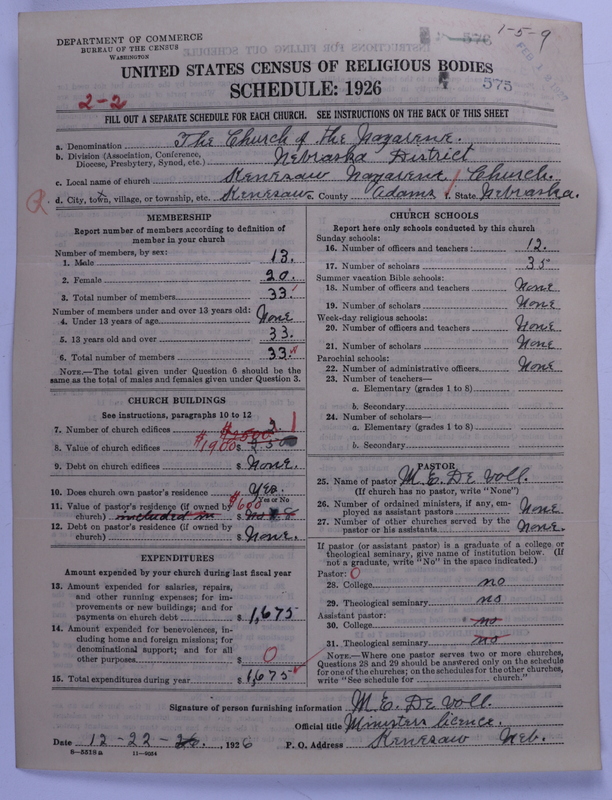 DEPARTMENT OF COMMERCE
BUREAU OF THE CENSUS
WASHINGTON
576
1-5-9
575
UNITED STATES CENSUS OF RELIGIOUS BODIES
SCHEDULE: 1926
2-2
FILL OUT A SEPARATE SCHEDULE FOR EACH CHURCH. SEE INSTRUCTIONS ON THE BACK OF THIS SHEET
a. Denomination The Church of the Nazarene.
b. Division (Association, Conference, Diocese, Presbytery, Synod, etc.) Nebraska District
c. Local name of church Kenesaw Nazarene Church.
d. City, town, village, or township, etc. Kenesaw County Adams f. State Nebraska.
MEMBERSHIP
Report number of members according to definition of
member in your church
Number of members, by sex:
1. Male 13.
2. Female 20.
3. Total number of members 33.
Number of members under and over 13 years old:
4. Under 13 years of age None
5. 13 years old and over 33.
6. Total number of members 33.
NOTE.—The total given under Question 6 should be
same as the total of males and females given under Question 3.
CHURCH BUILDINGS
See instructions, paragraphs 10 to 12
7. Number of church edifices 2. 1
$2500
8. Value of church edifices $1900 $ 250
9. Debt on church edifices $ None.
10. Does church own pastor's residence Yes.
Yes or No
11. Value of pastor's residence (if owned by $600
church) included in $ no 8.
12. Debt on pastor's residence (if owned by
church) $ None.
EXPENDITURES
Amount expended by your church during last fiscal year
13. Amount expended for salaries, repairs,
and other running expenses; for im-
provements or new buildings; and for
payments on church debt $ 1,675
14. Amount expended for benevolences, in-
cluding home and foreign missions; for
denominational support; and for all
other purposes $ 0
15. Total expenditures during year $ 1,675
CHURCH SCHOOLS
Report here only schools conducted by this church
Sunday schools:
16. Number of officers and teachers 12.
17. Number of scholars 35
Summer vacation Bible schools:
18. Number of officers and teachers None
19. Number of scholars None
Week-day religious schools:
20. Number of officers and teachers None
21. Number of scholars None
Parochial schools:
22. Number of administrative officers None
23. Number of teachers—
a. Elementary (grades 1 to 8)
b. Secondary
24. Number of scholars—
a. Elementary (grades 1 to 8)
b. Secondary
PASTOR
25. Name of pastor M. E. De Voll.
(If church has no pastor, write "None")
26. Number of ordained ministers, if any, em-
ployed as assistant pastors None
27. Number of other churches served by the
pastor or his assistants None.
If pastor (or assistant pastor) is a graduate of a college or
theological seminary, give name of institution below. (If
not a graduate, write "No" in the space indicated.)
Pastor: 0
28. College no
29. Theological seminary no
Assistant pastor:
30. College no
31. Theological seminary no
NOTE.—Where one pastor serves two or more churches,
Questions 28 and 29 should be answered only on the schedule
for one of the churches; on the schedules for the other churches,
write "See schedule for church."
Signature of person furnishing information M. E. De Voll.
Official title Ministers licence.
Date 12-22-26., 1926 P. O. Address Kenesaw Neb.
8-5518a 11-9054